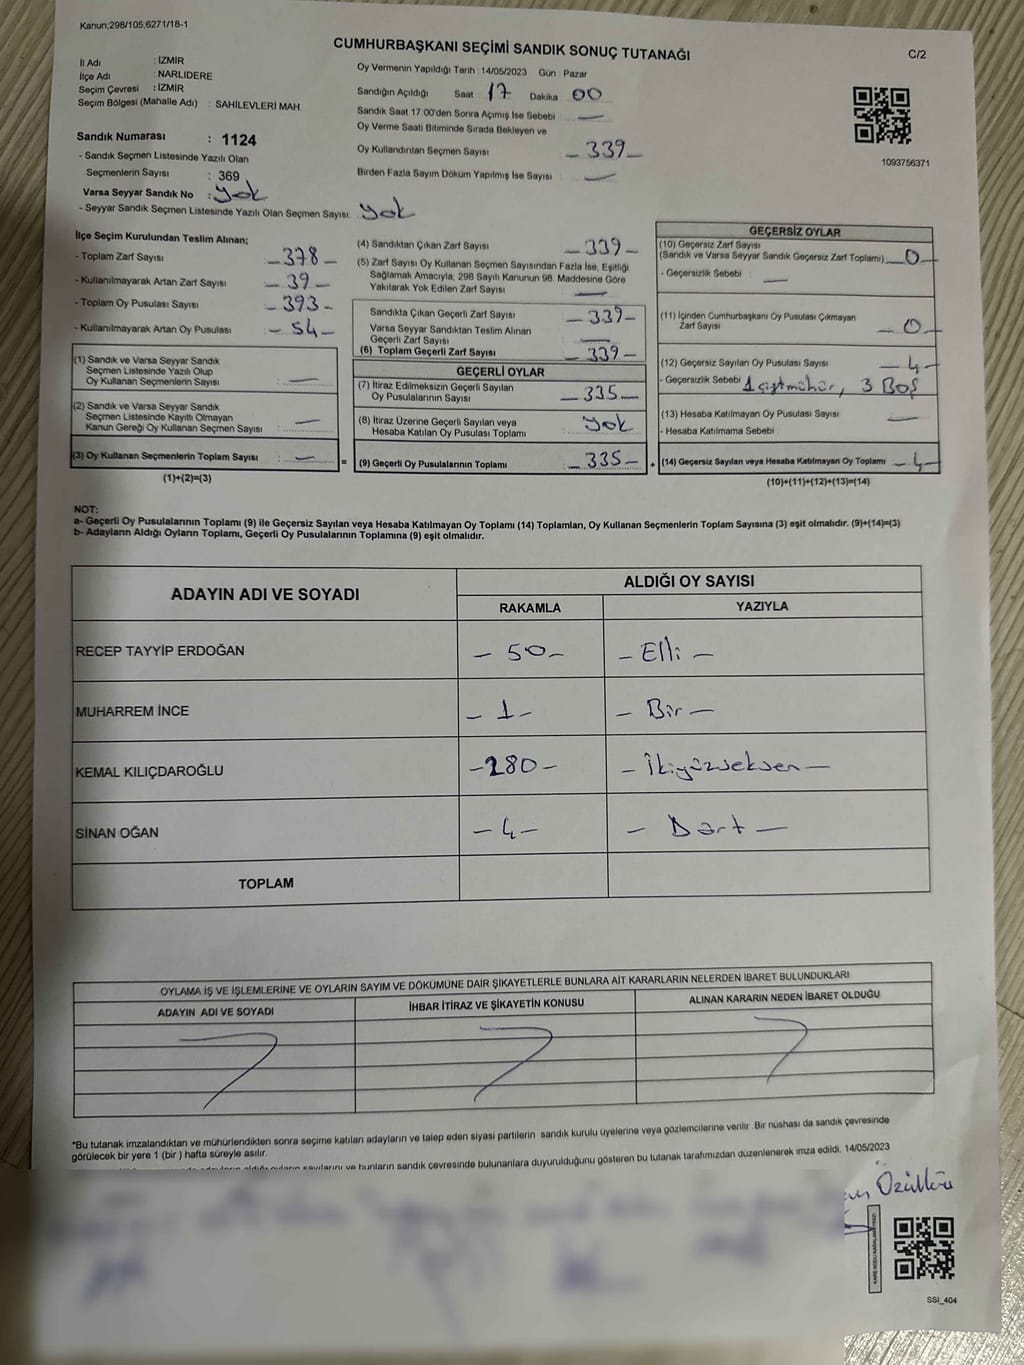 Kanun;298/105;6271/18-1
CUMHURBAŞKANI SEÇİMİ SANDIK SONUÇ TUTANAĞI
C/2
İl Adı : İZMİR
İlçe Adı : NARLIDERE
Seçim Çevresi : İZMİR
Seçim Bölgesi (Mahalle Adı) : SAHILEVLERİ MAH.
Sandık Numarası : 1124
- Sandık Seçmen Listesinde Yazılı Olan
Seçmenlerin Sayısı : 369
Varsa Seyyar Sandık No : yok
- Seyyar Sandık Seçmen Listesinde Yazılı Olan Seçmen Sayısı: yok
Oy Vermenin Yapıldığı Tarih : 14/05/2023 Gün : Pazar
Sandığın Açıldığı Saat 17 Dakika 00
Sandık Saat 17.00'den Sonra Açımış İse Sebebi —
Oy Verme Saati Bitiminde Sırada Bekleyen ve
Oy Kullandırılan Seçmen Sayısı — 339 —
Birden Fazla Sayım Döküm Yapılmış İse Sayısı —
1093756371
İlçe Seçim Kurulundan Teslim Alınan;
- Toplam Zarf Sayısı — 378 —
- Kullanılmayarak Artan Zarf Sayısı — 39 —
- Toplam Oy Pusulası Sayısı — 393 —
- Kullanılmayarak Artan Oy Pusulası — 54 —
(1) Sandık ve Varsa Seyyar Sandık
Seçmen Listesinde Yazılı Olup
Oy Kullanan Seçmenlerin Sayısı —
(2) Sandık ve Varsa Seyyar Sandık
Seçmen Listesinde Kayıtlı Olmayan
Kanun Gereği Oy Kullanan Seçmen Sayısı —
(3) Oy Kullanan Seçmenlerin Toplam Sayısı : —
(1)+(2)=(3)
(4) Sandıktan Çıkan Zarf Sayısı — 339 —
(5) Zarf Sayısı Oy Kullanan Seçmen Sayısından Fazla İse, Eşitliği
Sağlamak Amacıyla, 298 Sayılı Kanunun 98. Maddesine Göre
Yakılarak Yok Edilen Zarf Sayısı —
Sandıkta Çıkan Geçerli Zarf Sayısı — 339 —
Varsa Seyyar Sandıktan Teslim Alınan
Geçerli Zarf Sayısı —
(6) Toplam Geçerli Zarf Sayısı — 339 —
GEÇERLİ OYLAR
(7) İtiraz Edilmeksizin Geçerli Sayılan
Oy Pusulalarının Sayısı — 335 —
(8) İtiraz Üzerine Geçerli Sayılan veya
Hesaba Katılan Oy Pusulası Toplamı yok
= (9) Geçerli Oy Pusulalarının Toplamı — 335 —
GEÇERSİZ OYLAR
(10) Geçersiz Zarf Sayısı
(Sandık ve Varsa Seyyar Sandık Geçersiz Zarf Toplamı) — 0 —
- Geçersizlik Sebebi —
(11) İçinden Cumhurbaşkanı Oy Pusulası Çıkmayan
Zarf Sayısı — 0 —
(12) Geçersiz Sayılan Oy Pusulası Sayısı — 4 —
- Geçersizlik Sebebi 1 çift mühür, 3 Boş
(13) Hesaba Katılmayan Oy Pusulası Sayısı —
- Hesaba Katılmama Sebebi
+ (14) Geçersiz Sayılan veya Hesaba Katılmayan Oy Toplamı — 4 —
(10)+(11)+(12)+(13)=(14)
NOT:
a- Geçerli Oy Pusulalarının Toplamı (9) ile Geçersiz Sayılan veya Hesaba Katılmayan Oy Toplamı (14) Toplamları, Oy Kullanan Seçmenlerin Toplam Sayısına (3) eşit olmalıdır. (9)+(14)=(3)
b- Adayların Aldığı Oyların Toplamı, Geçerli Oy Pusulalarının Toplamına (9) eşit olmalıdır.
ADAYIN ADI VE SOYADI
ALDIĞI OY SAYISI
RAKAMLA YAZIYLA
RECEP TAYYİP ERDOĞAN — 50 — — Elli —
MUHARREM İNCE — 1 — — Bir —
KEMAL KILIÇDAROĞLU — 280 — — İkiyüzseksen —
SİNAN OĞAN — 4 — — Dört —
TOPLAM
OYLAMA İŞ VE İŞLEMLERİNE VE OYLARIN SAYIM VE DÖKÜMÜNE DAİR ŞİKAYETLERLE BUNLARA AİT KARARLARIN NELERDEN İBARET BULUNDUKLARI
ADAYIN ADI VE SOYADI İHBAR İTİRAZ VE ŞİKAYETİN KONUSU ALINAN KARARIN NEDEN İBARET OLDUĞU
*Bu tutanak imzalandıktan ve mühürlendikten sonra seçime katılan adayların ve talep eden siyasi partilerin sandık kurulu üyelerine veya gözlemcilerine verilir. Bir nüshası da sandık çevresinde
görülecek bir yere 1 (bir ) hafta süreyle asılır.
sayılarını ve bunların sandık çevresinde bulunanlara duyurulduğunu gösteren bu tutanak tarafımızdan düzenlenerek imza edildi. 14/05/2023
SSI_404